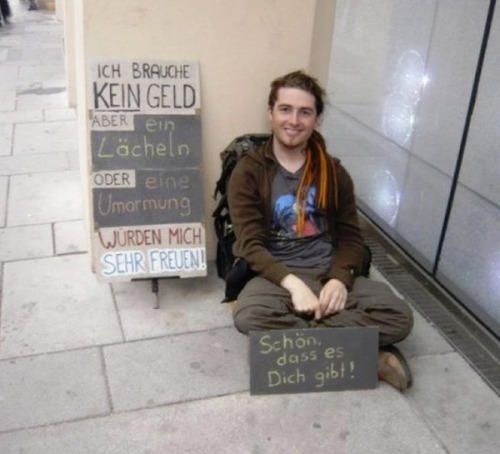 ICH BRAUCHE
KEIN GELD
ABER ein
Lächeln
ODER eine
Umarmung
WÜRDEN MICH
SEHR FREUEN!
Schön,
dass es
Dich gibt!